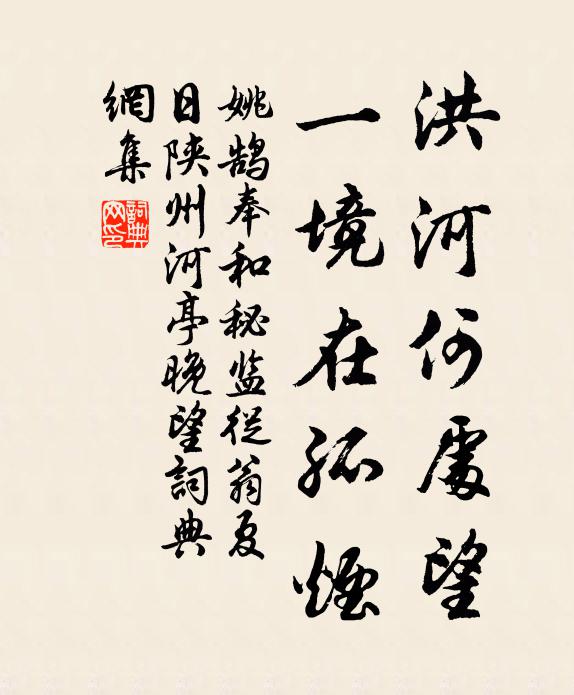 洪河何處望
一境在孤煙
姚鹄奉和秘监從翁夏
日陝州河亭晚望詞典
網集
詞典
网印